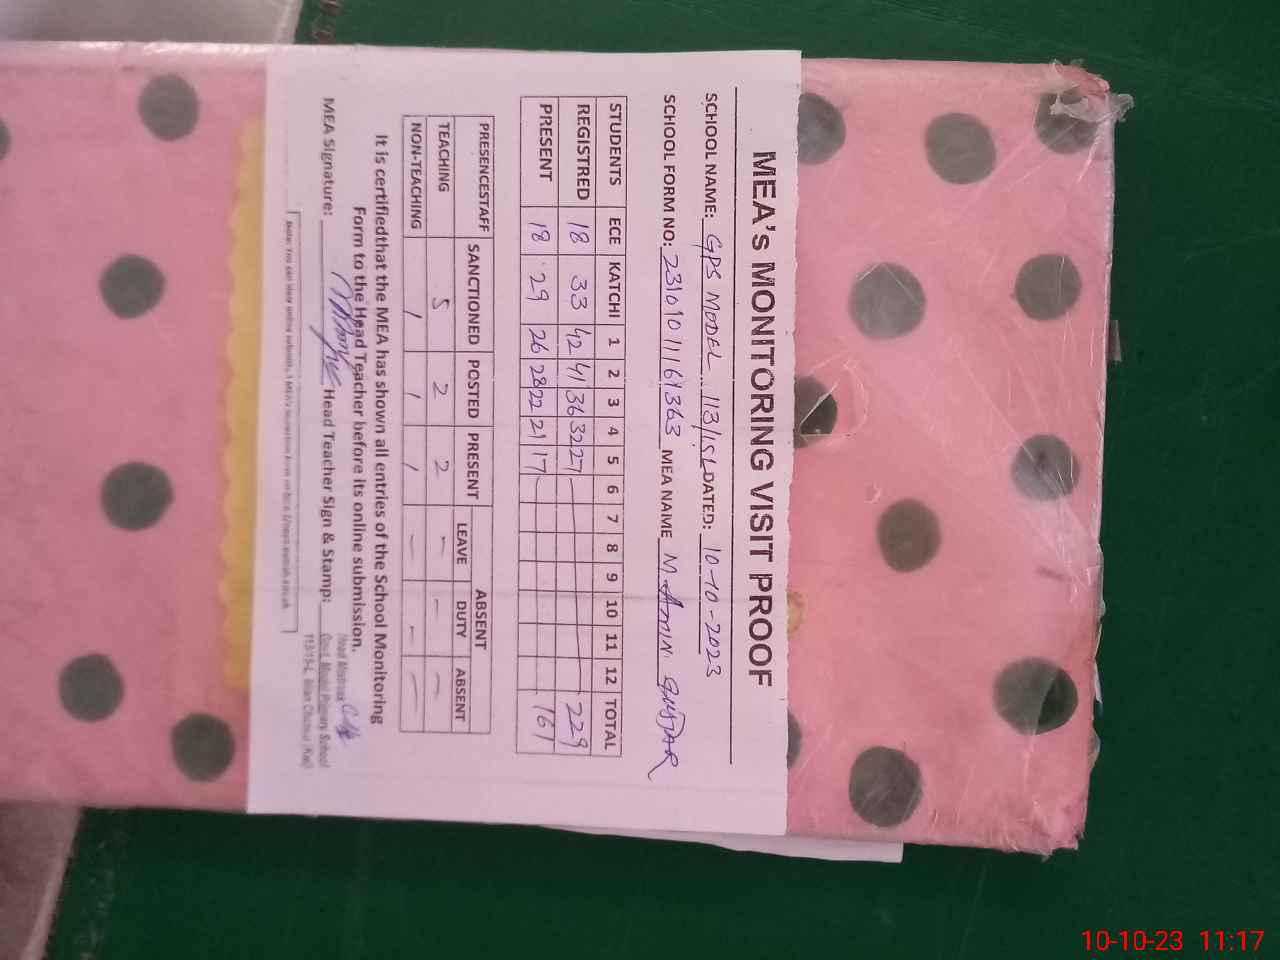 MEA's MONITORING VISIT PROOF
SCHOOL NAME: GPS MODEL 113/15L DATED: 10-10-2023
SCHOOL FORM NO: 23101011161363 MEA NAME M AMIN
STUDENTS ECE KATCHI 1 2 3 4 5 6 7 8 9 10 11 12 TOTAL
REGISTRED 18 33 42 41 36 32 27 229
PRESENT 18 29 26 28 22 21 17 161
PRESENCESTAFF SANCTIONED POSTED PRESENT ABSENT
LEAVE DUTY ABSENT
TEACHING 5 2 2 - - -
NON-TEACHING 1 1 1 - - -
It is certifiedthat the MEA has shown all entries of the School Monitoring
Form to the Head Teacher before its online submission.
MEA Signature: Head Teacher Sign & Stamp:
Head Mistress
Govt. Model Primary School
113/15-L, Mian Channu (Kwl)
Note: You can view online submitt
10-10-23 11:17